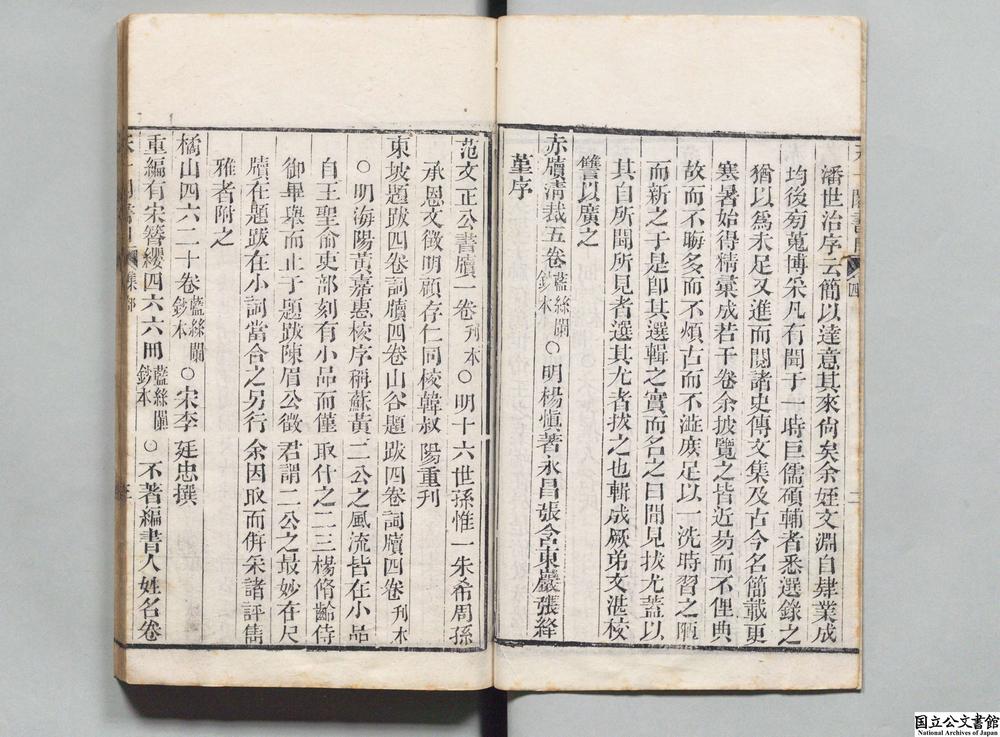 潘世治序云簡以達意其來尙矣余姪文淵自肆業成
均後旁蒐博采凡有聞于一時巨儒碩輔者悉選錄之
猶以爲未足又進而閱諸史傳文集及古今名簡載更
寒暑始得精彙成若干卷余披覽之皆近易而不俚典
故而不晦多而不煩古而不澁庶足以一洗時習之陋
而新之于是卽其選輯之實而名之曰聞見拔尤蓋以
其自所聞所見者選其尤者拔之也輯成厥弟文湛校
讐以廣之
赤牘淸裁五卷藍絲闌鈔本○明楊愼著永昌張含東巖張絳
堇序
范文正公書牘一卷刋本○明十六世孫惟一朱希周孫
承恩文徵明顧存仁同棱韓叔陽重刋
東坡題跋四卷詞牘四卷山谷題跋四卷詞牘四卷刋本
○明海陽黃嘉惠棱序稱蘇黃二公之風流皆在小品
自王聖俞吏部刻有小品而僅取什之二三楊脩齡侍
御畢舉而止于題跋陳眉公徵君謂二公之最妙在尺
牘在題跋在小詞當合之另行余因取而倂采諸評雋
雅者附之
橘山四六二十卷藍絲闌鈔本○宋李廷忠撰
重編有宋簪纓四六六冊藍絲闌鈔本○不著編書人姓名卷
国立公文書館
National Archives of Japan